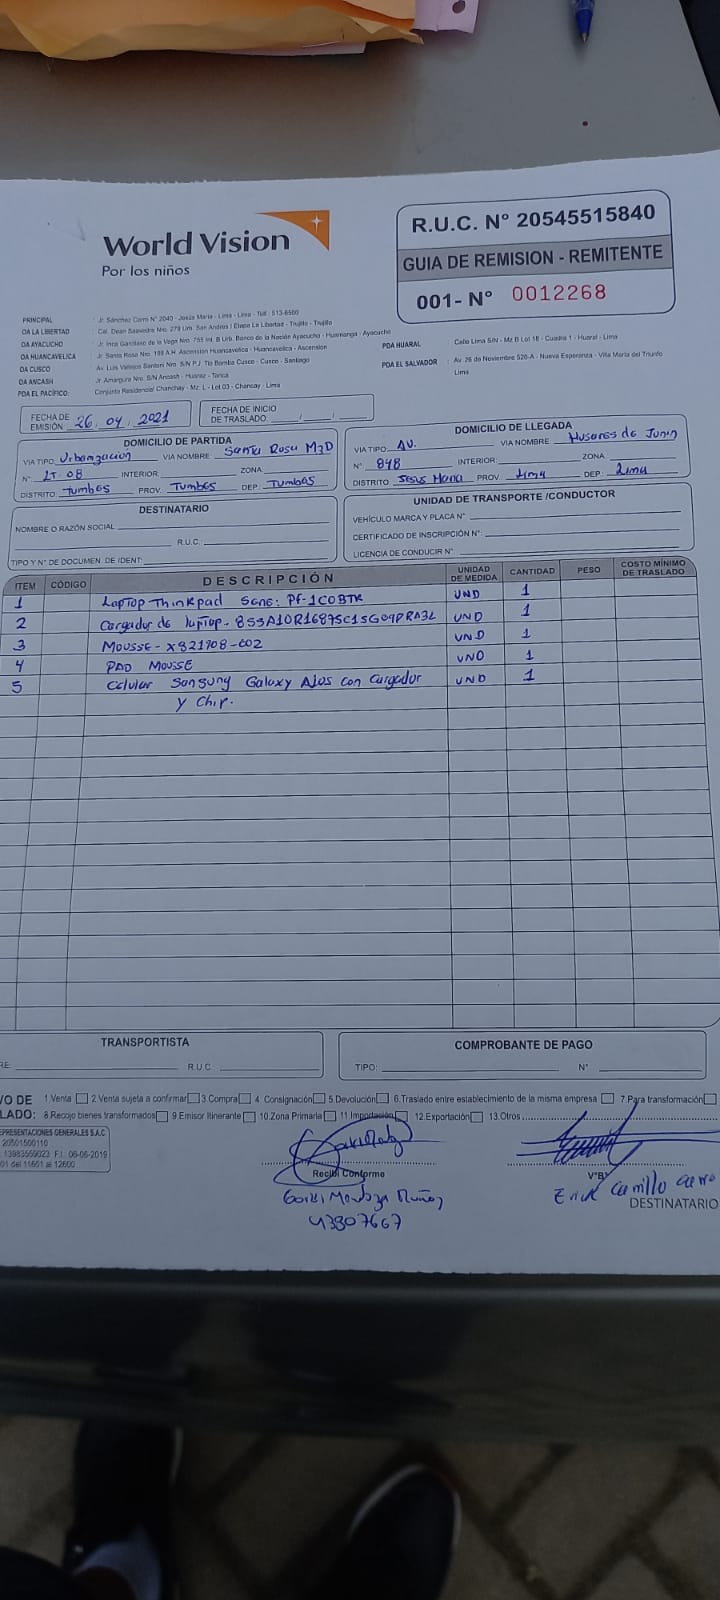 World Vision
Por los niños
R.U.C. N° 20545515840
GUIA DE REMISION - REMITENTE
001- N° 0012268
PRINCIPAL : Jr. Sánchez Cerro N° 2040 - Jesús María - Lima - Lima - Telf.: 513-6500
DA LA LIBERTAD : Cal. Dean Saavedra Nro. 279 Urb. San Andres I Etapa La Libertad - Trujillo - Trujillo
DA AYACUCHO : Jr. Inca Garcilaso de la Vega Nro. 755 Int. B Urb. Banco de la Nación Ayacucho - Huamanga - Ayacucho
DA HUANCAVELICA : Jr. Santa Rosa Nro. 188 A.H. Ascensión Huancavelica - Huancavelica - Ascension
DA CUSCO : Av. Luis Vallejos Santoni Nro. S/N P.J. Tio Bamba Cusco - Cusco - Santiago
DA ANCASH : Jr. Amargura Nro. S/N Ancash - Huaraz - Tarica
PDA EL PACÍFICO: Conjunto Residencial Chanchay - Mz. L - Lot 03 - Chancay - Lima
PDA HUARAL : Calle Lima S/N - Mz B Lot 18 - Cuadra 1 - Huaral - Lima
PDA EL SALVADOR : Av. 26 de Noviembre 520-A - Nueva Esperanza - Villa Maria del Triunfo
Lima
FECHA DE EMISIÓN 26, 04, 2021
FECHA DE INICIO DE TRASLADO:
DOMICILIO DE PARTIDA
VIA TIPO: Urbanización VIA NOMBRE Santa Rosa MzD
N° LT 08 INTERIOR ZONA
DISTRITO Tumbes PROV. Tumbes DEP. Tumbes
DOMICILIO DE LLEGADA
VIA TIPO: AV. VIA NOMBRE Husares de Junin
N° 848 INTERIOR: ZONA
DISTRITO Jesus Maria PROV Lima DEP. Lima
DESTINATARIO
NOMBRE O RAZÓN SOCIAL
R.U.C.:
TIPO Y N° DE DOCUMEN. DE IDENT.:
UNIDAD DE TRANSPORTE /CONDUCTOR
VEHÍCULO MARCA Y PLACA N°
CERTIFICADO DE INSCRIPCIÓN N°:
LICENCIA DE CONDUCIR N°
ITEM CÓDIGO DESCRIPCIÓN UNIDAD DE MEDIDA CANTIDAD PESO COSTO MÍNIMO DE TRASLADO
1 Laptop Thinkpad Serie: PF-1C0BTK UND 1
2 Cargador de laptop- 8SSA10R16875C1SG09PRA3L UND 1
3 Mousse - X821908-C02 UND 1
4 PAD Mousse UND 1
5 Celular Sansung Galaxy A10s con Cargador UND 1
y Chip.
TRANSPORTISTA
RE: R.U.C
COMPROBANTE DE PAGO
TIPO: N°
VO DE 1.Venta 2.Venta sujeta a confirmar 3.Compra 4. Consignación 5.Devolución 6.Traslado entre establecimiento de la misma empresa 7.Para transformación
LADO: 8.Recojo bienes transformados 9.Emisor Itinerante 10.Zona Primaria 11.Importación 12.Exportación 13.Otros
EPRESENTACIONES GENERALES S.A.C
20501500110
: 13983559023 F.I.: 06-06-2019
01 del 11601 al 12600
Recibí Conforme
Mendoza Muñoz
43807667
V°B°
Erick Carrillo
DESTINATARIO